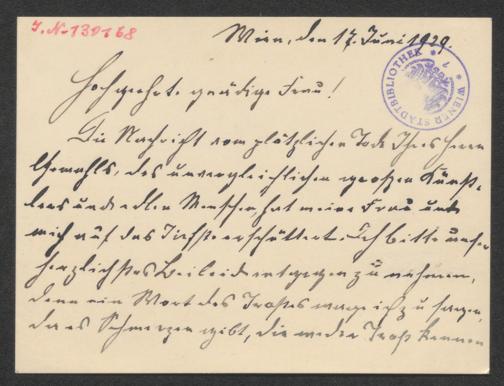 J.N. 139768
Wien, den 17. Juni 1929.
WIENER STADTBIBLIOTHEK
Hochgeehrte gnädige Frau!
Die Nachricht vom plötzlichen Tode Ihres Herrn
Gemahls, des unvergleichlichen großen Künst-
lers und edlen Menschen, hat meine Frau und
mich auf das Tiefste erschüttert. Ich bitte unser
herzlichstes Beileid entgegen zu nehmen,
denn ein Wort des Trostes wage ich zu sagen,
da es Schmerzen gibt, die weder Trost kennen